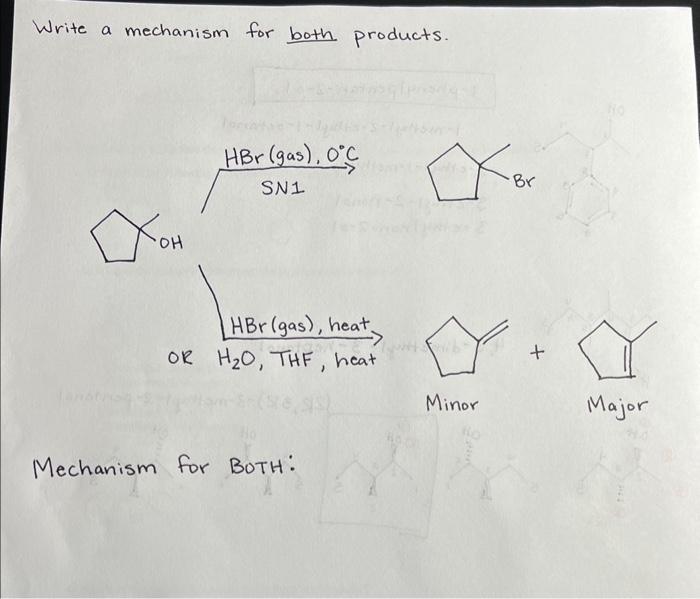 Write a mechanism for both products.
HBr (gas), 0°C
SN1
Br
OH
HBr (gas), heat
OR H₂O, THF, heat
+
Minor
Major
Mechanism for BOTH: